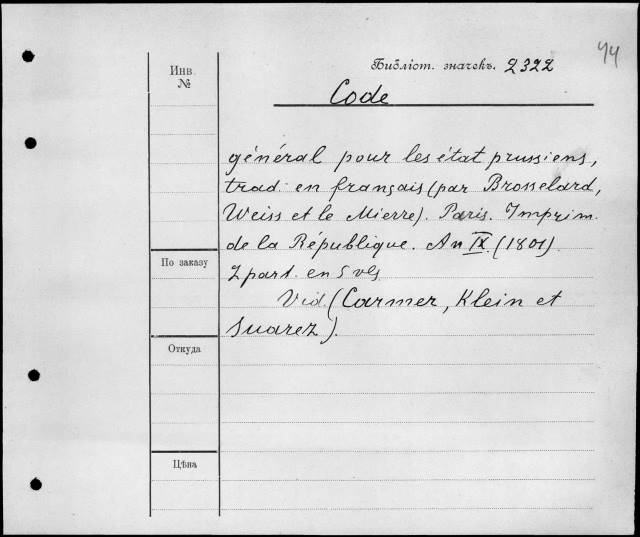 44
Инв. №
Библіот. значекъ. 2322
Code
général pour les état prussiens,
trad. en français (par Brosselard,
Weiss et le Mierre). Paris. Imprim.
de la République. An IX. (1801).
По заказу
2 part. en 5 vls
Vid. (Carmer, Klein et
Suarez).
Откуда
Цѣна